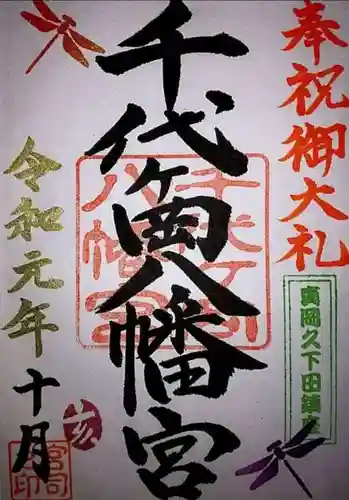 奉祝御大礼
真岡久下田鎮
千代ヶ岡八幡宮
千代ヶ岡
八幡宮
令和元年
十月
亥
宮司
之印